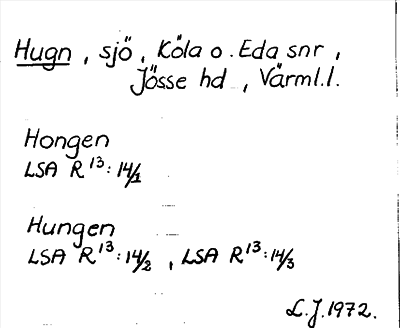 Hugn, sjö, Köla o. Eda snr,
Jösse hd, Värml.l.
Hongen
LSA R13:14/1
Hungen
LSA R13:14/2, LSA R13:14/3
L.J.1972.